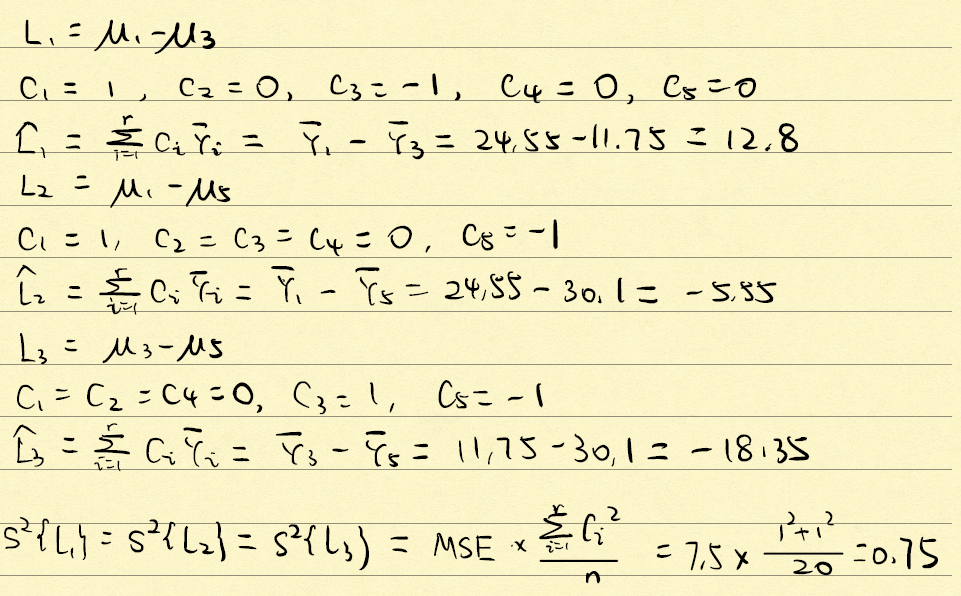 L₁ = μ₁-μ₃
C₁ = 1, C₂ = 0, C₃ = -1, C₄ = 0, C₅ = 0
L̂₁ = Σᵢ₌₁ʳ Cᵢ Ȳᵢ = Ȳ₁ - Ȳ₃ = 24.55-11.75 = 12.8
L₂ = μ₁-μ₅
C₁ = 1, C₂ = C₃ = C₄ = 0, C₅ = -1
L̂₂ = Σᵢ₌₁ʳ Cᵢ Ȳᵢ = Ȳ₁ - Ȳ₅ = 24.55-30.1 = -5.55
L₃ = μ₃-μ₅
C₁ = C₂ = C₄ = 0, C₃ = 1, C₅ = -1
L̂₃ = Σᵢ₌₁ʳ Cᵢ Ȳᵢ = Ȳ₃ - Ȳ₅ = 11.75-30.1 = -18.35
S²{L₁} = S²{L₂} = S²{L₃} = MSE × (Σᵢ₌₁ʳ Cᵢ²)/n = 7.5 × (1²+1²)/20 = 0.75